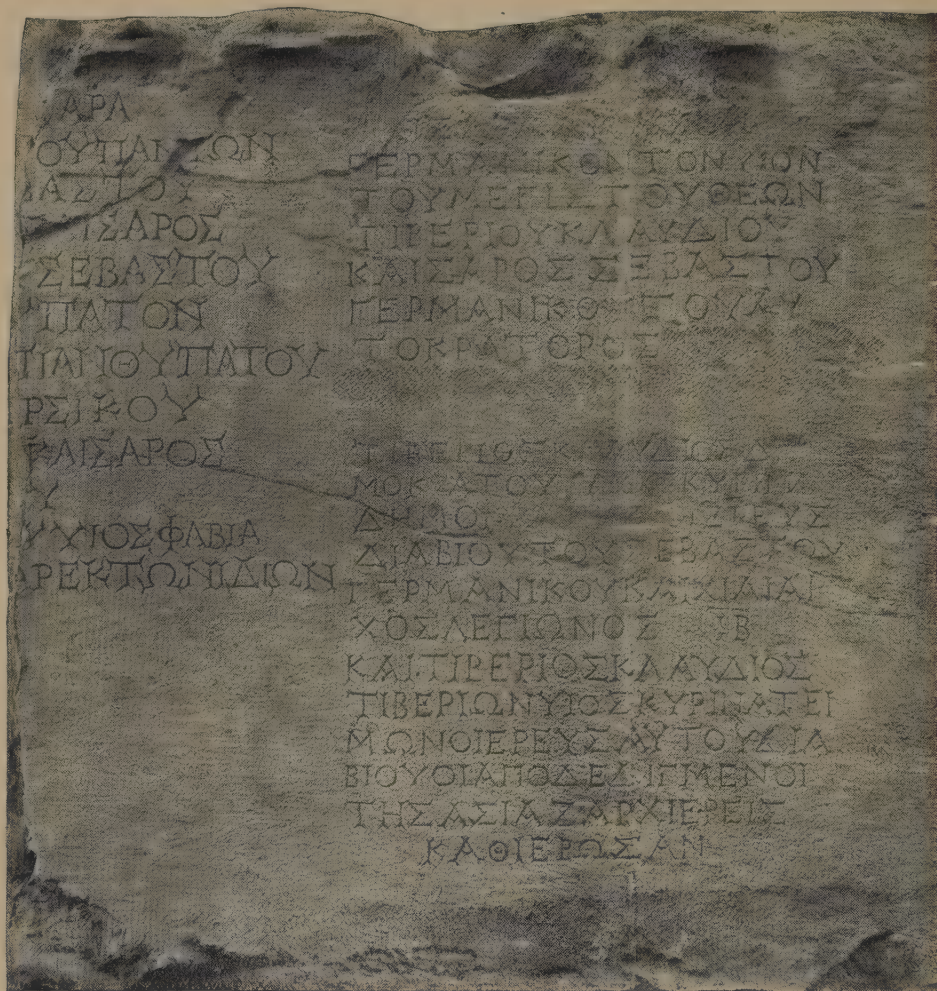 ΑΡΑ
ΟΥΠΑΝΤΩΝ
ΒΑΣΤΟΥ
ΑΙΣΑΡΟΣ
ΣΕΒΑΣΤΟΥ
ΥΠΑΤΟΝ
ΠΙΑΝΘΥΠΑΤΟΥ
ΡΣΙΚΟΥ
ΚΑΙΣΑΡΟΣ
Υ
ΥΥΙΟΣΦΑΒΙΑ
ΑΡΕΚΤΩΝΙΔΙΩΝ
ΓΕΡΜΑΝΙΚΟΝΤΟΝΥΙΟΝ
ΤΟΥΜΕΓΙΣΤΟΥΘΕΩΝ
ΤΙΒΕΡΙΟΥΚΛΑΥΔΙΟΥ
ΚΑΙΣΑΡΟΣΣΕΒΑΣΤΟΥ
ΓΕΡΜΑΝΙΚΟΥΤΟΥΑΥ
ΤΟΚΡΑΤΟΡΟΣ
ΤΙΒΕΡΙΟΣΚΛΑΥΔΙΟΣΔ
ΔΙΑΒΙΟΥΤΟΥΣΕΒΑΣΤΟΥ
ΓΕΡΜΑΝΙΚΟΥΚΑΙΧΙΛΙΑΡ
ΧΟΣΛΕΓΙΩΝΟΣ ΙΒ
ΚΑΙΤΙΒΕΡΙΟΣΚΛΑΥΔΙΟΣ
ΤΙΒΕΡΙΩΝΥΙΟΣΚΥΡΙΝΑΤΕΙ
ΜΩΝΟΙΕΡΕΥΣΑΥΤΟΥΔΙΑ
ΒΙΟΥΟΙΑΠΟΔΕΔΙΓΜΕΝΟΙ
ΤΗΣΑΣΙΑΣΑΡΧΙΕΡΕΙΣ
ΚΑΘΙΕΡΩΣΑΝ